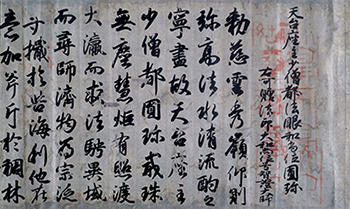 天台座主少僧都法眼和尚位圓珎
右可贈法印大和尚位智證大師
勅慈雲秀嶺仰則
弥高法水清流酌之
寧盡故天台座主
少僧都圓珎戒珠
無塵慧炬有照渡
大瀛而求法馳異域
而尋師濟物為宗泛
寸檝於苦海利他在
意加斧斤於稠林